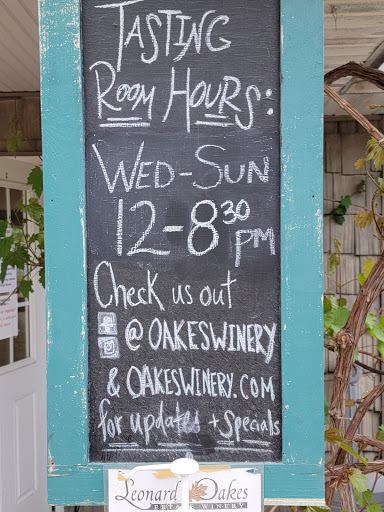 TASTING
ROOM HOURS:
WED-SUN
12-830 PM
Check us out
@OAKESWINERY
& OAKESWINERY.COM
for updates + Specials
Leonard Oakes
ESTATE WINERY